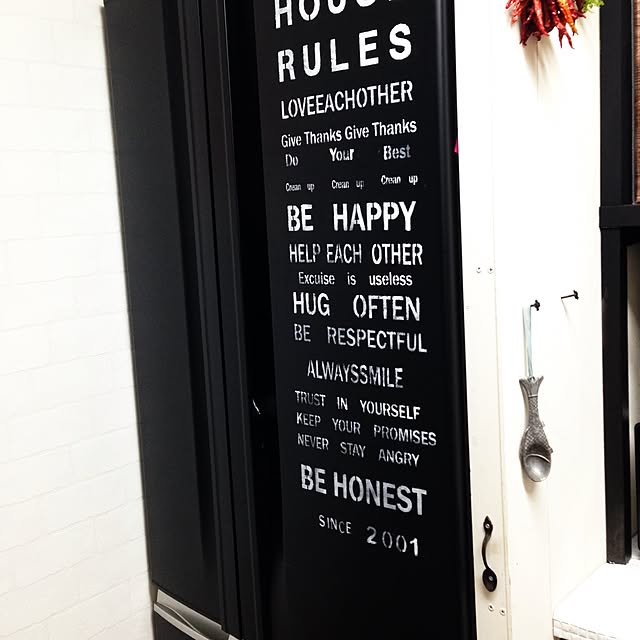 HOUSE
RULES
LOVEEACHOTHER
Give Thanks Give Thanks
Do Your Best
Crean up Crean up Crean up
BE HAPPY
HELP EACH OTHER
Excuise is useless
HUG OFTEN
BE RESPECTFUL
ALWAYSSMILE
TRUST IN YOURSELF
KEEP YOUR PROMISES
NEVER STAY ANGRY
BE HONEST
SINCE 2001